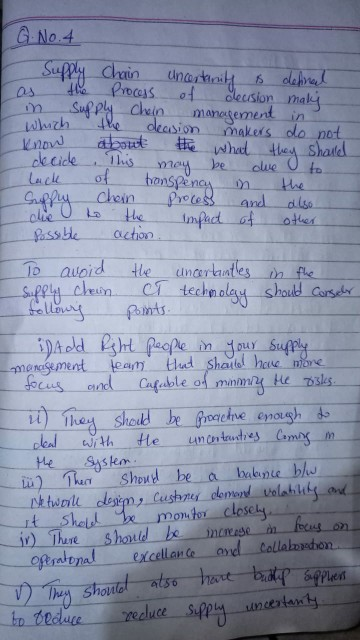 Q.No.4
Supply Chain uncertainity is defined
as the Process of decision making
in supply chain management in
which the decision makers do not
know about the what they should
decide. This may be due to
lack of transpency in the
Supply Chain Process and also
due to the impact of other
Possible action.
To avoid the uncertainties in the
supply chain CT technology should consider
follows points.
i) Add Right people in your supply
management team that should have more
focus and capable of minimizing the risks.
ii) They should be proactive enough to
deal with the uncertainties coming in
the system.
iii) Their should be a balance b/w
Network design, customer demand volatility and
it should be monitor closely.
iv) There should be increase in focus on
operational excellance and collaboration
v) They should also have backup suppliers
to reduce reduce supply uncertainty.